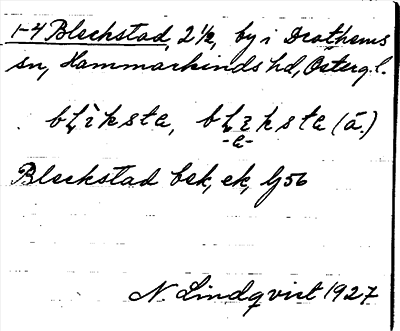 1-4 Bleckstad, 2 1/2, by i Drothems
sn, Hammarkinds hd, Österg. l.
bḷìksta, bḷìksta (ä.)
-e-
Bleckstad bek, ek, Gj 56
N. Lindqvist 1927